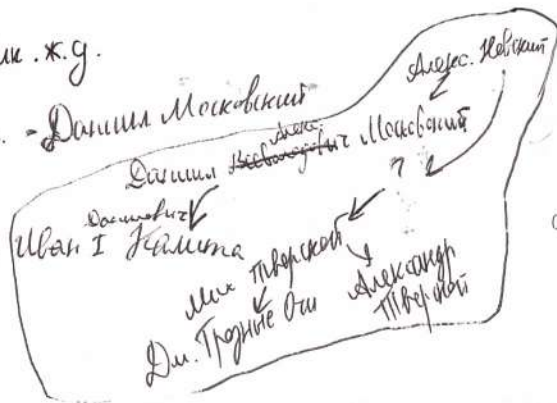 ж.д.
- Даниил Московский
Алекс. Невский
Даниил Алекс. Московский
?
Данилович
Иван I Калита
Мих Тверской
Дм. Грозные Очи
Александр Тверской